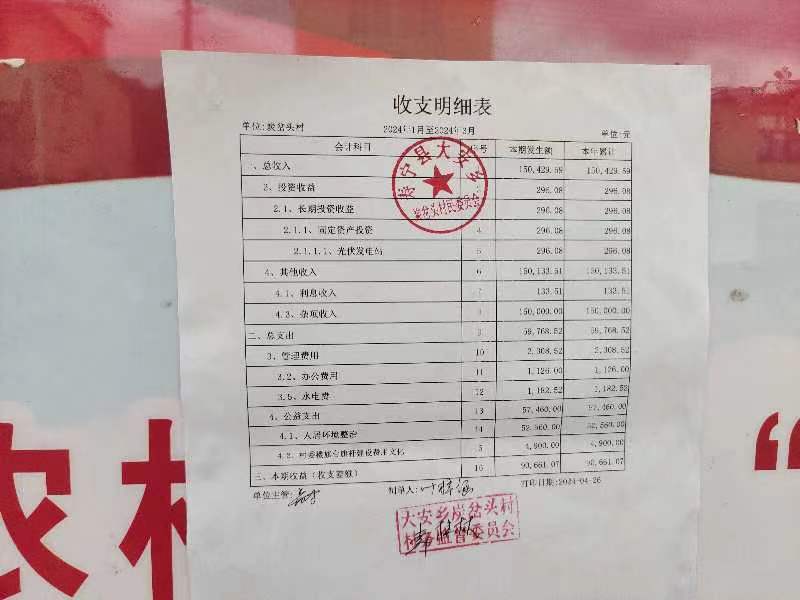 收支明细表
单位:炭岔头村 2024年1月至2024年3月 单位:元
会计科目 行号 本期发生额 本年累计
一、总收入 150,429.59 150,429.59
3、投资收益 296.08 296.08
2.1、长期投资收益 296.08 296.08
2.1.1、固定资产投资 4 296.08 296.08
2.1.1.1、光伏发电站 5 296.08 296.08
4、其他收入 6 150,133.51 150,133.51
4.1、利息收入 7 133.51 133.51
4.3、杂项收入 8 150,000.00 150,000.00
二、总支出 9 59,768.52 59,768.52
3、管理费用 10 2,308.52 2,308.52
3.2、办公费用 11 1,126.00 1,126.00
3.5、水电费 12 1,182.52 1,182.52
4、公益支出 13 57,460.00 57,460.00
4.1、人居环境整治 14 52,560.00 52,560.00
4.2、 5 4,900.00 4,900.00
三、本期收益(收支差额) 16 90,661.07 90,661.07
单位主管: 制单人: 打印日期:2024-04-26
宁县大安乡
炭岔头村民委员会
大安乡炭岔头村
村监督委员会
农村 “